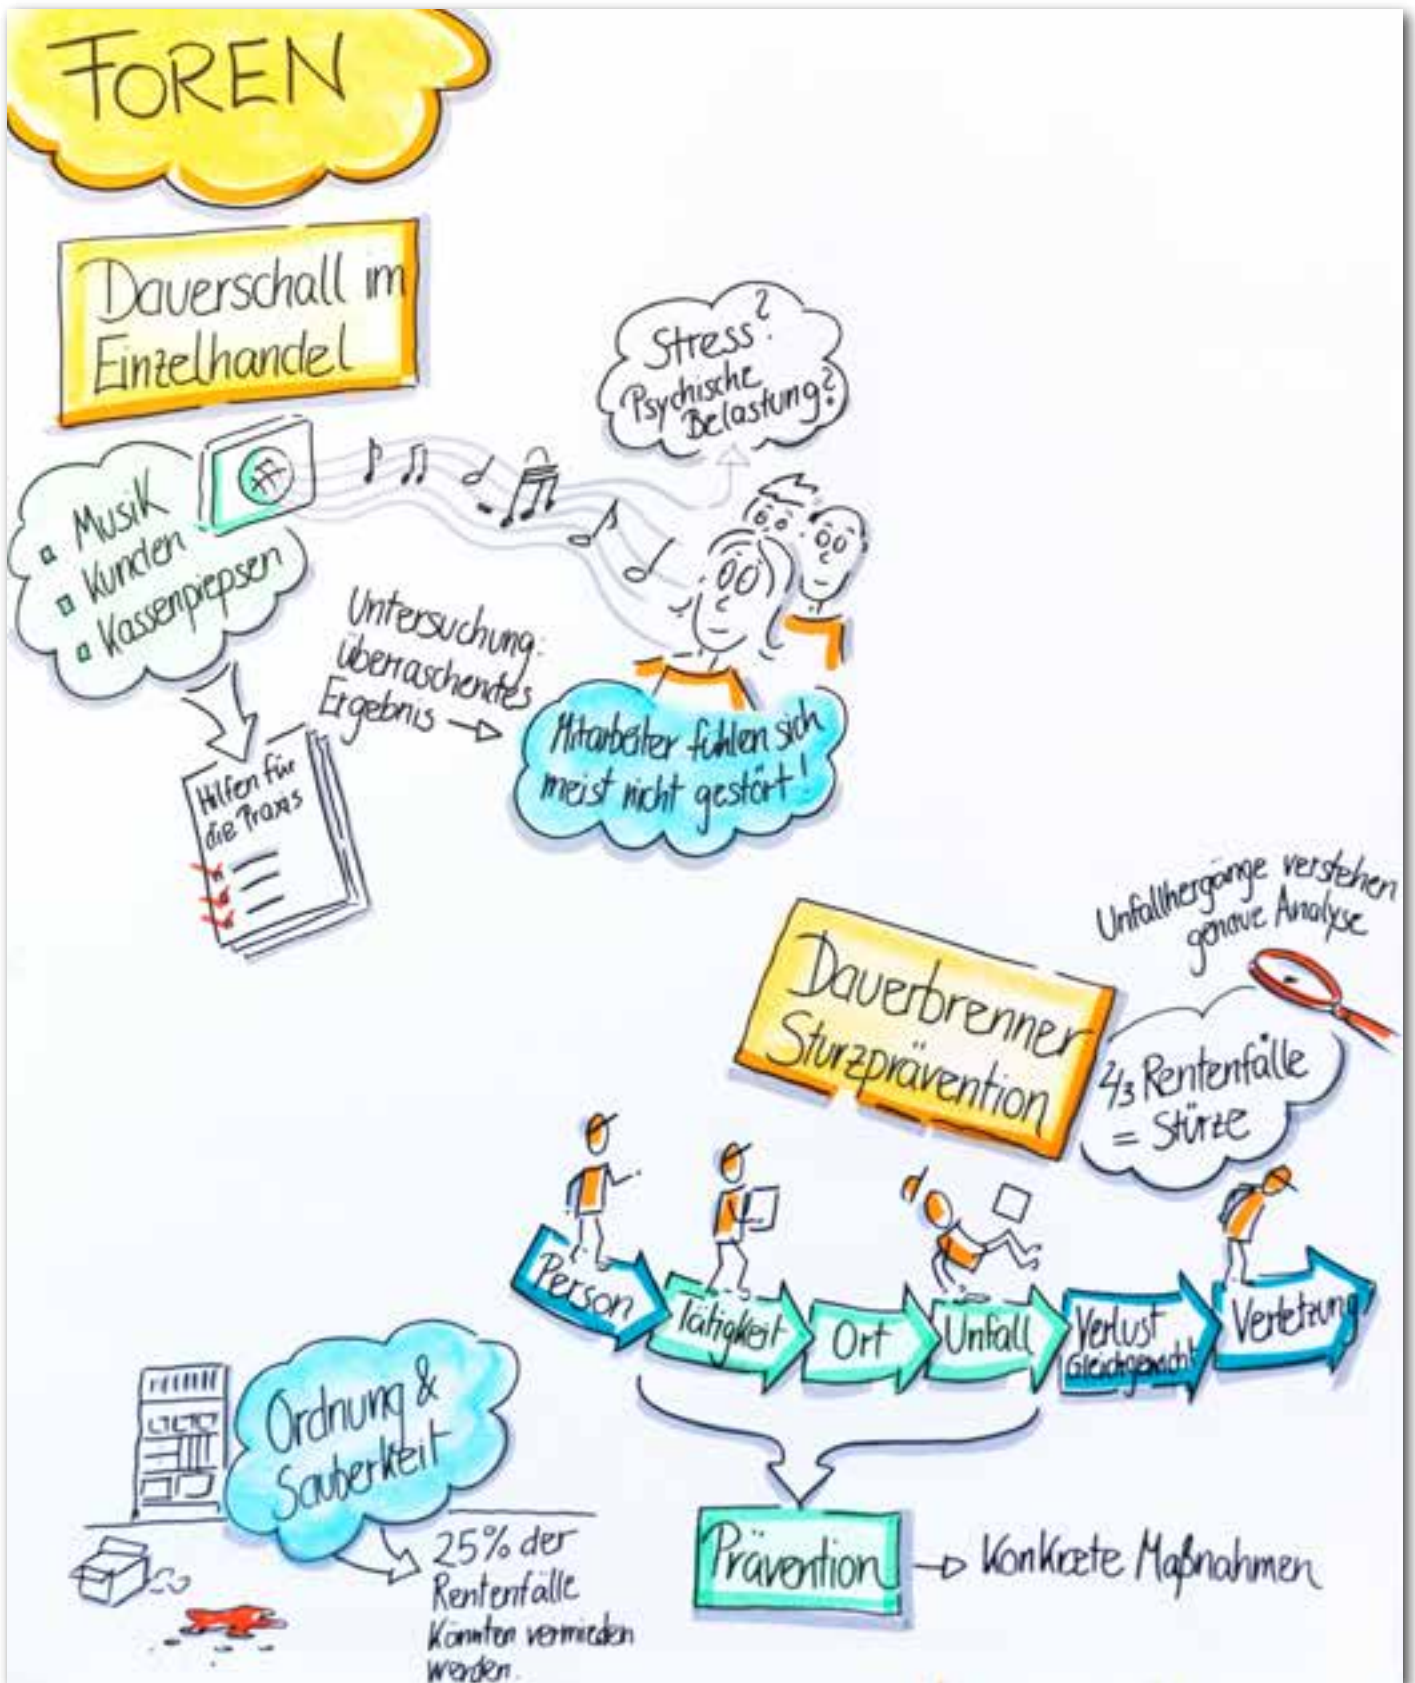 FOREN
Dauerschall im
Einzelhandel
Stress?
Psychische
Belastung?
Musik
Kunden
Kassenpiepsen
Untersuchung:
überraschendes
Ergebnis
Mitarbeiter fühlen sich
meist nicht gestört!
Hilfen für
die Praxis
Unfallhergänge verstehen
genaue Analyse
Dauerbrenner
Sturzprävention
2/3 Rentenfälle
= Stürze
Person
Tätigkeit
Ort
Unfall
Verlust
Gleichgewicht
Verletzung
Ordnung &
Sauberkeit
25% der
Rentenfälle
könnten vermieden
werden.
Prävention
Konkrete Maßnahmen